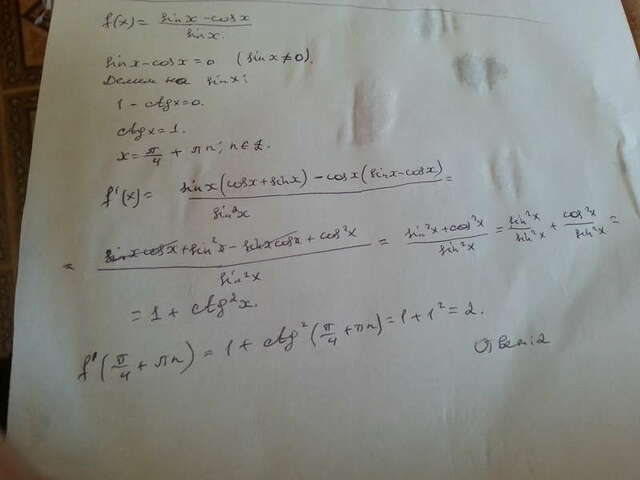 f(x) = (sinx - cosx) / sinx
sinx - cosx = 0 (sinx ≠ 0).
Делим на sinx:
1 - ctgx = 0.
ctgx = 1.
x = π/4 + πn; n ∈ Z.
f'(x) = (sinx(cosx + sinx) - cosx(sinx - cosx)) / sin²x =
= (sinxcosx + sin²x - sinxcosx + cos²x) / sin²x = (sin²x + cos²x) / sin²x = sin²x / sin²x + cos²x / sin²x =
= 1 + ctg²x.
f'(π/4 + πn) = 1 + ctg²(π/4 + πn) = 1 + 1² = 2.
Ответ: 2